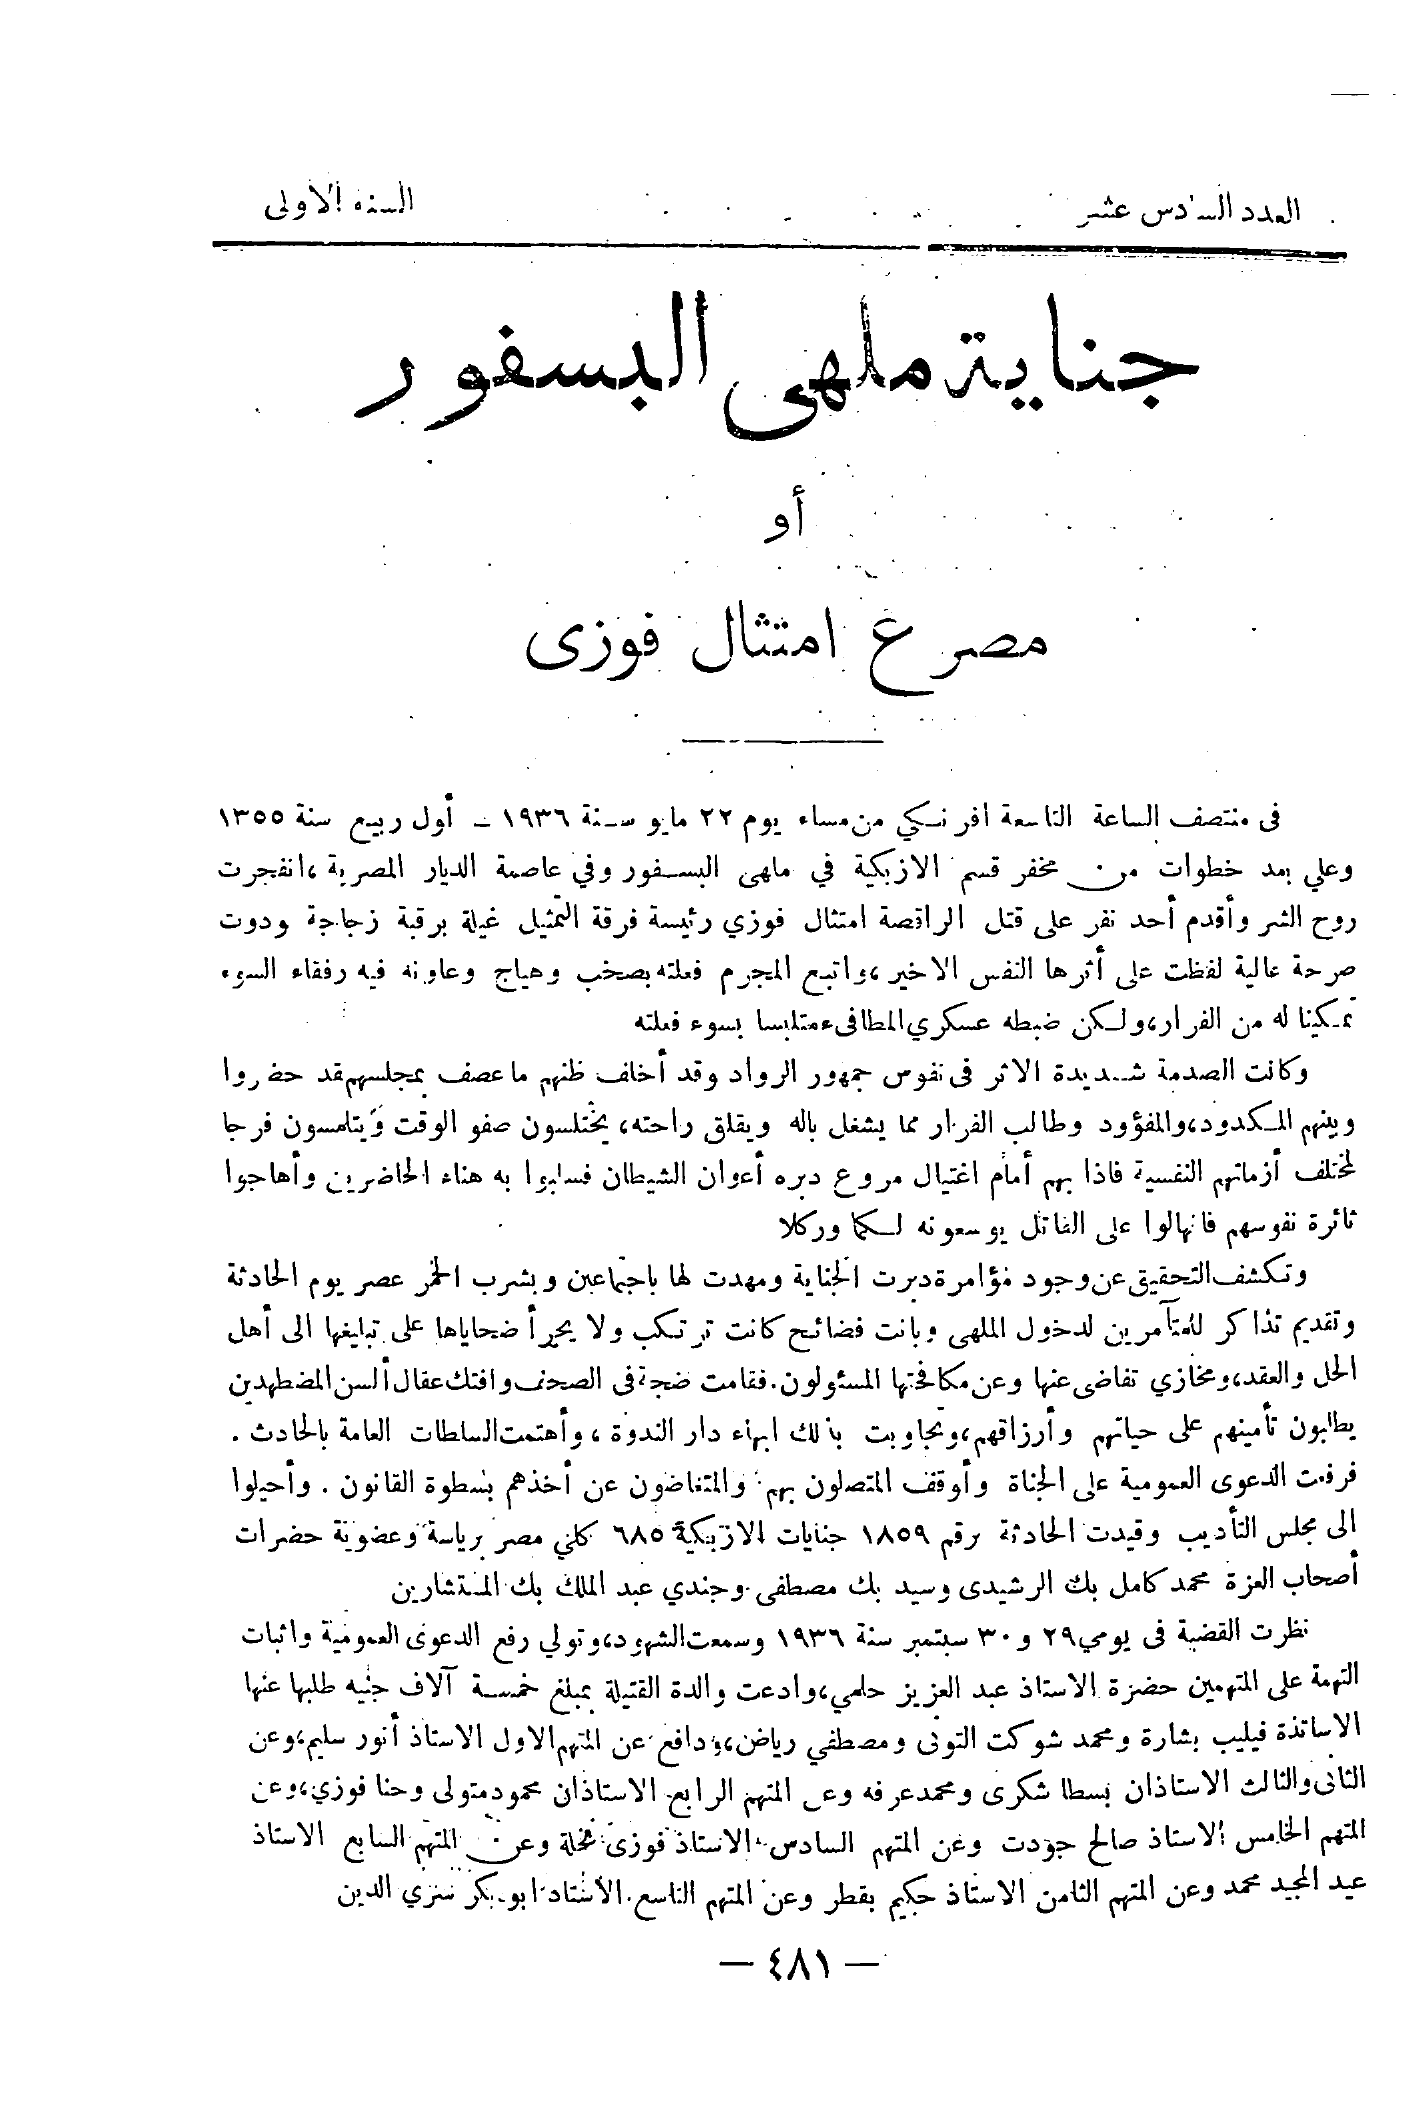 العدد السادس عشر
السنة الاولى
جناية ملهى البسفور
أو
مصرع امتثال فوزى
فى منتصف الساعة التاسعة افرنكي من مساء يوم ٢٢ مايو سنة ١٩٣٦ – أول ربيع سنة ١٣٥٥
وعلي بعد خطوات من مخفر قسم الازبكية في ملهى البسفور وفي عاصمة الديار المصرية ، انفجرت
روح الشر وأقدم أحد نفر على قتل الراقصة امتثال فوزي رئيسة فرقة التمثيل غيلة برقبة زجاجة ودوت
صرخة عالية لفظت على أثرها النفس الاخير ، واتبع المجرم فعلته بصخب وهياج وعاونه فيه رفقاء السوء
تمكينا له من الفرار، ولكن ضبطه عسكري المطافىء متلبسا بسوء فعلته
وكانت الصدمة شديدة الاثر فى نفوس جمهور الرواد وقد أخلف ظنهم ما عصف بمجلسهم قد حضروا
وبينهم المكدود، والمفؤود وطالب الفرار مما يشغل باله ويقلق راحته، يختلسون صفو الوقت ويتلمسون فرجا
لمختلف أزماتهم النفسية فاذا بهم أمام اغتيال مروع دبره أعوان الشيطان فسلبوا به هناء الحاضرين وأهاجوا
ثائرة نفوسهم فانهالوا على القاتل يوسعونه لكما وركلا
وتكشف التحقيق عن وجود مؤامرة دبرت الجناية ومهدت لها باجتماعين وبشرب الخمر عصر يوم الحادثة
وتقديم تذاكر للمتآمرين لدخول الملهى وبانت فضائح كانت ترتكب ولا يجرأ ضحاياها على تبليغها الى أهل
الحل والعقد، ومخازي تغاضى عنها وعن مكافحتها المسئولون. فقامت ضجة فى الصحف وافتك عقال ألسن المضطهدين
يطالبون تأمينهم على حياتهم وأرزاقهم، وتجاوبت بذلك ابهاء دار الندوة ، وأهتمت السلطات العامة بالحادث .
فرفعت الدعوى العمومية على الجناة وأوقف المتصلون بهم والمتغاضون عن أخذهم بسطوة القانون . وأحيلوا
الى مجلس التأديب وقيدت الحادثة برقم ١٨٥٩ جنايات الازبكية ٦٨٥ كلي مصر برياسة وعضوية حضرات
أصحاب العزة محمد كامل بك الرشيدى وسيد بك مصطفى وجندي عبد الملك بك المستشارين
نظرت القضية فى يومي ٢٩ و ٣٠ سبتمبر سنة ١٩٣٦ وسمعت الشهود، وتولي رفع الدعوى العمومية واثبات
التهمة على المتهمين حضرة الاستاذ عبد العزيز حلمي، وادعت والدة القتيلة بمبلغ خمسة آلاف جنيه طلبها عنها
الاساتذة فيليب بشارة ومحمد شوكت التونى ومصطفي رياض، ودافع عن المتهم الاول الاستاذ أنور سليم، وعن
الثانى والثالث الاستاذان بسطا شكرى ومحمد عرفه وعن المتهم الرابع الاستاذان محمود متولى وحنا فوزي، وعن
المتهم الخامس الاستاذ صالح جودت وعن المتهم السادس الاستاذ فوزى نخلة وعن المتهم السابع الاستاذ
عبد المجيد محمد وعن المتهم الثامن الاستاذ حكيم بقطر وعن المتهم التاسع الأستاذ ابو بكر الدين
— ٤٨١ —